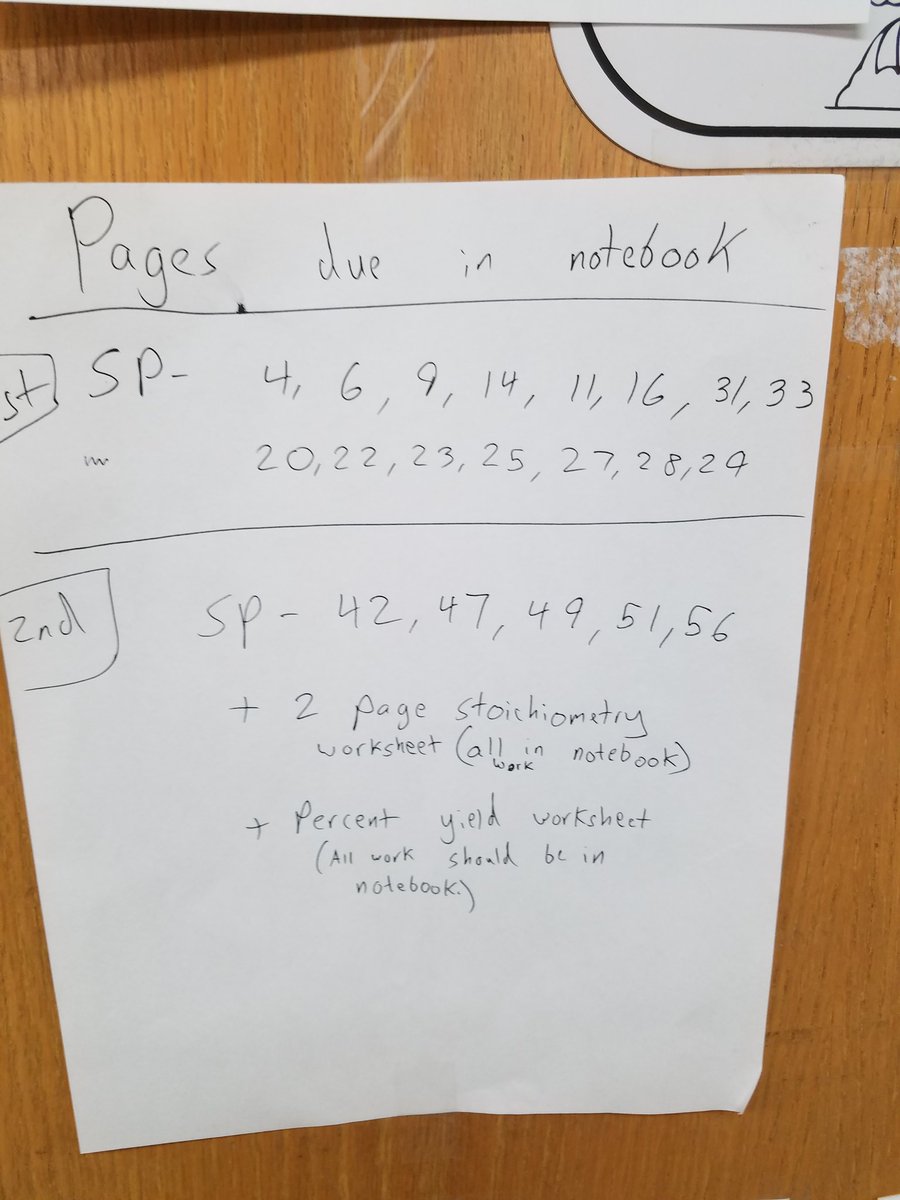 Pages due in notebook
st SP- 4, 6, 9, 14, 11, 16, 31, 33
20, 22, 23, 25, 27, 28, 29
2nd SP - 42, 47, 49, 51, 56
+ 2 page stoichiometry
worksheet (all work in notebook)
+ Percent yield worksheet
(All work should be in
notebook.)